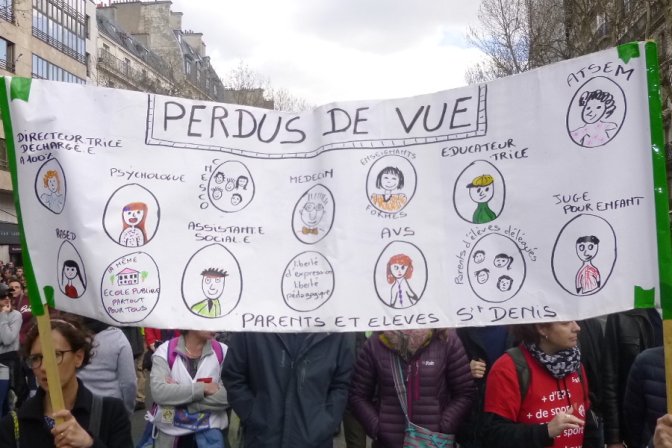 PERDUS DE VUE
DIRECTEUR.TRICE
DÉCHARGÉ.E
A 100%
PSYCHOLOGUE
MEDECIN
ENSEIGNANTS
FORMÉS
EDUCATEUR
TRICE
ATSEM
RASED
LA MÊME
ÉCOLE PUBLIQUE
PARTOUT
POUR TOUS
ASSISTANTE
SOCIALE
liberté
d'expression
liberté
pédagogique
AVS
Parents d'élèves délégués
JUGE
POUR ENFANT
PARENTS ET ELEVES ST DENIS
+ d'EPS
+ de sport